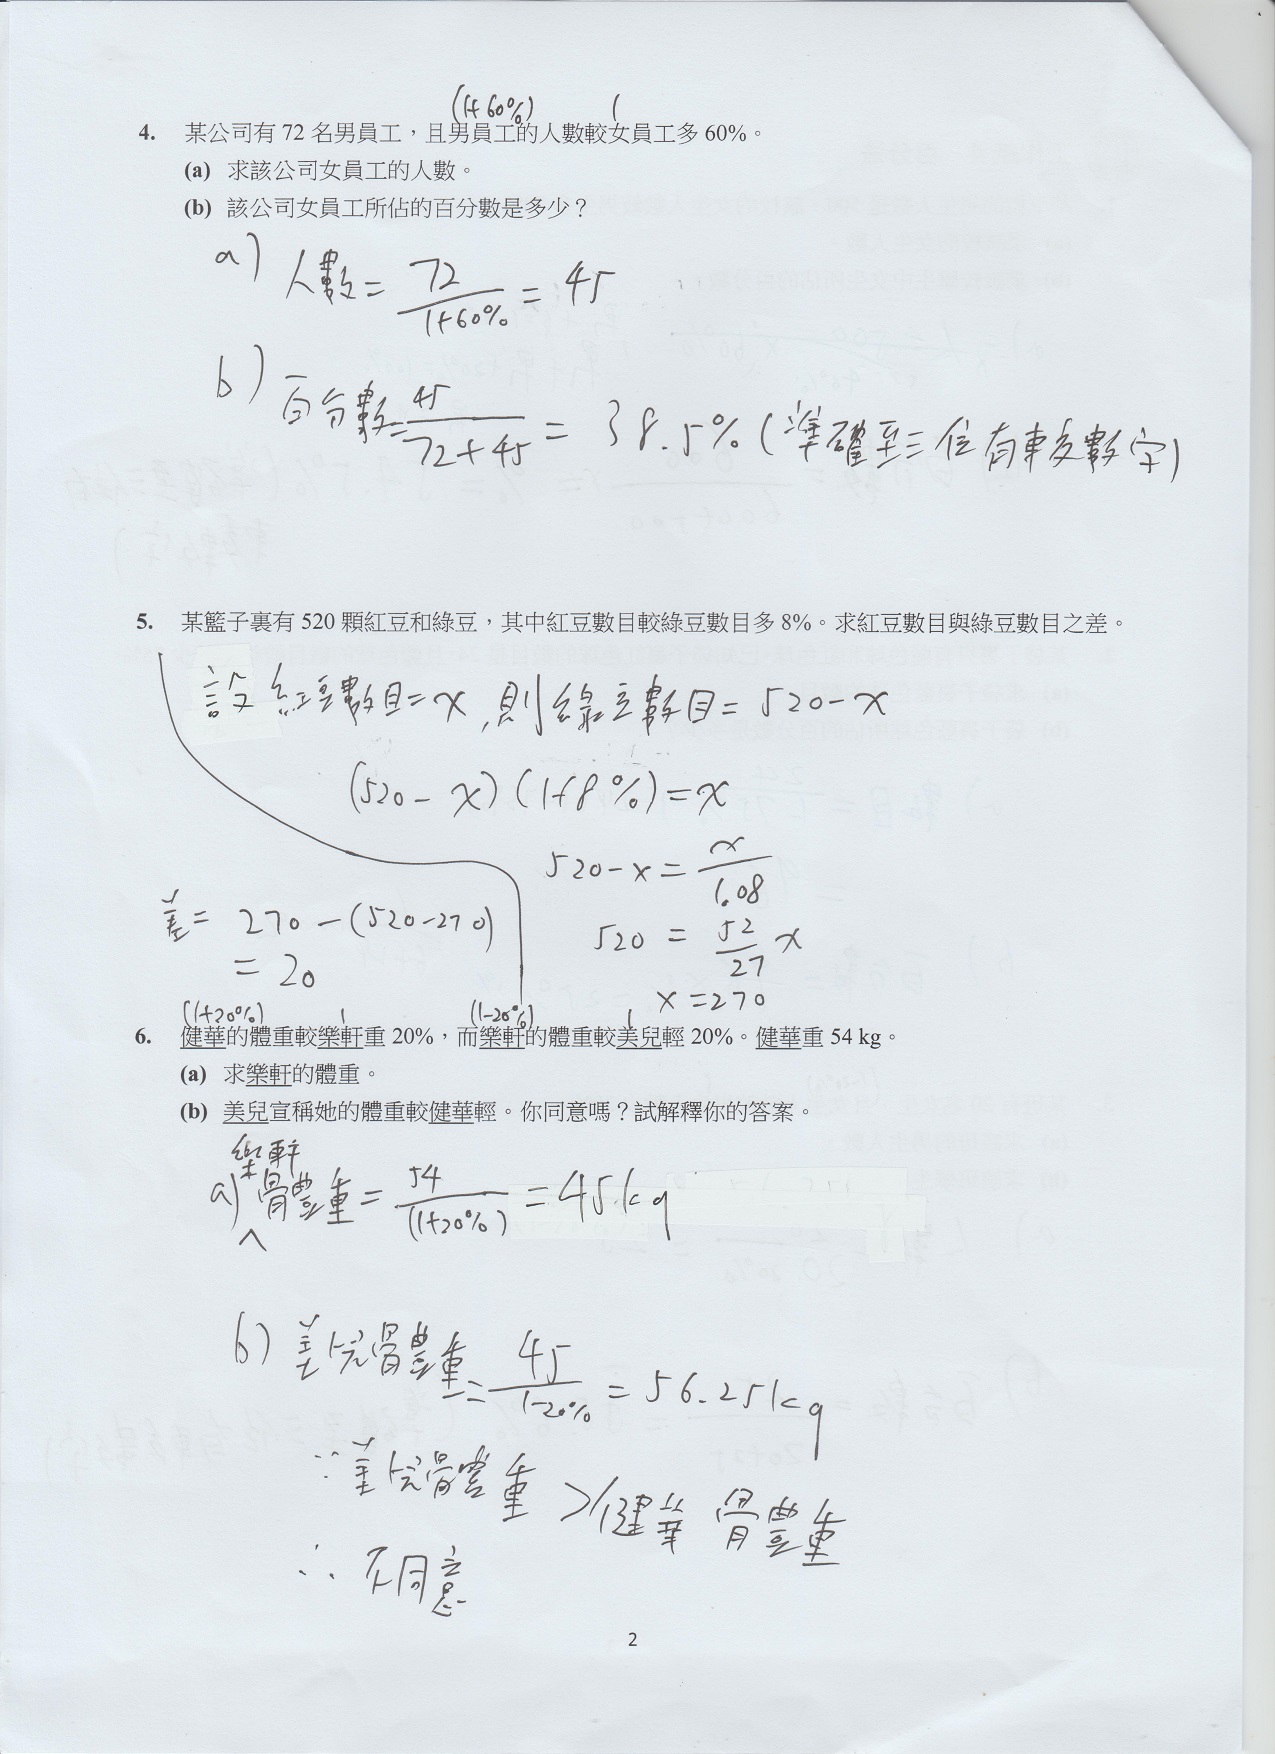 (1+60%) 1
4. 某公司有 72 名男員工，且男員工的人數較女員工多 60%。
(a) 求該公司女員工的人數。
(b) 該公司女員工所佔的百分數是多少？
a) 人數 = 72/(1+60%) = 45
b) 百分數 = 45/(72+45) = 38.5% (準確至三位有效數字)
5. 某籃子裏有 520 顆紅豆和綠豆，其中紅豆數目較綠豆數目多 8%。求紅豆數目與綠豆數目之差。
設紅豆數目 = x, 則綠豆數目 = 520 - x
(520 - x)(1+8%) = x
520 - x = x/1.08
520 = 52/27 x
x = 270
差 = 270 - (520-270)
= 20
(1+20%) 1 (1-20%) 1
6. 健華的體重較樂軒重 20%，而樂軒的體重較美兒輕 20%。健華重 54 kg。
(a) 求樂軒的體重。
(b) 美兒宣稱她的體重較健華輕。你同意嗎？試解釋你的答案。
a) 樂軒體重 = 54/(1+20%) = 45kg
b) 美兒體重 = 45/(1-20%) = 56.25kg
∵ 美兒體重 > 健華體重
∴ 不同意
2